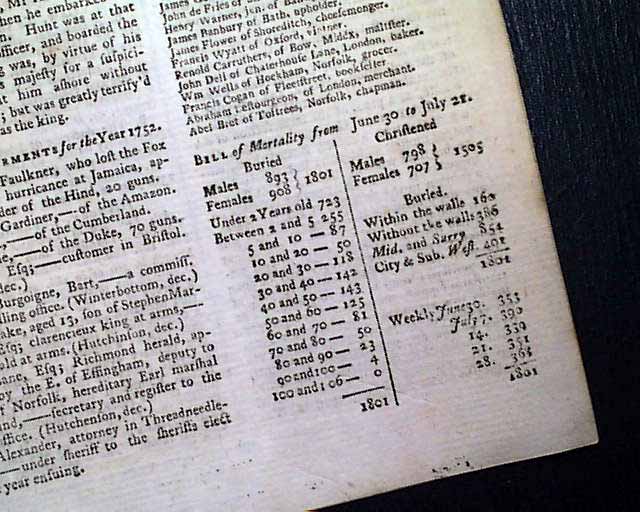 he embarked
n. Hunt was at that
officer, and boarded the
g was, by virtue of his
majeſty for a ſuſpici-
t him aſhore without
; but was greatly terrify'd
as the king.
RMENTS for the Year 1752.
Faulkner, who loſt the Fox
hurricane at Jamaica, ap-
der of the Hind, 20 guns.
Gardiner,—of the Amazon.
,—of the Cumberland.
ne,—of the Duke, 70 guns.
Eſq;—cuſtomer in Briſtol.
dec.)
Burgoigne, Bart,—a commiſſ.
lling office. (Winterbottom, dec.)
ake, aged 13, ſon of Stephen Mar-
Eſq; clarencieux king at arms,—
old at arms. (Hutchinſon, dec.)
ane, Eſq; Richmond herald, ap-
by the E. of Effingham, deputy to
f Norfolk, hereditary Earl marſhal
nd,—ſecretary and regiſter to the
office. (Hutchenſon, dec.)
Alexander, attorney in Threadneedle-
—under ſheriff to the ſheriffs elect
year enſuing.
James
John de Fries of
Henry Warner, jun. of
James Banbury of Bath, upholder.
James Flower of Shoreditch, cheeſemonger.
Francis Wyatt of Oxford, vintner.
Renold Carruthers, of Bow, Middx, malſter.
John Dell of Chaterhouſe Lane, London, baker.
Wm Wells of Hockham, Norfolk, grocer.
Francis Cogan of Fleetſtreet, bookſeller.
Abraham Leſtourgeon, of London, merchant.
Abel Bret of Toftrees, Norfolk, chapman.
BILL of Mortality from June 30 to July 21.
Buried
Males 893 } 1801
Females 908
Under 2 Years old 723
Between 2 and 5 255
5 and 10 — 87
10 and 20 — 50
20 and 30 — 118
30 and 40 — 142
40 and 50 — 143
50 and 60 — 125
60 and 70 — 81
70 and 80 — 50
80 and 90 — 23
90 and 100 — 4
100 and 106 — 0
1801
Chriſtened
Males 798 } 1505
Females 707
Buried.
Within the walls 160
Without the walls 386
Mid. and Surry 854
City & Sub. Weſt. 401
1801
Weekly June 30. 353
July 7. 390
14. 339
21. 351
28. 368
1801